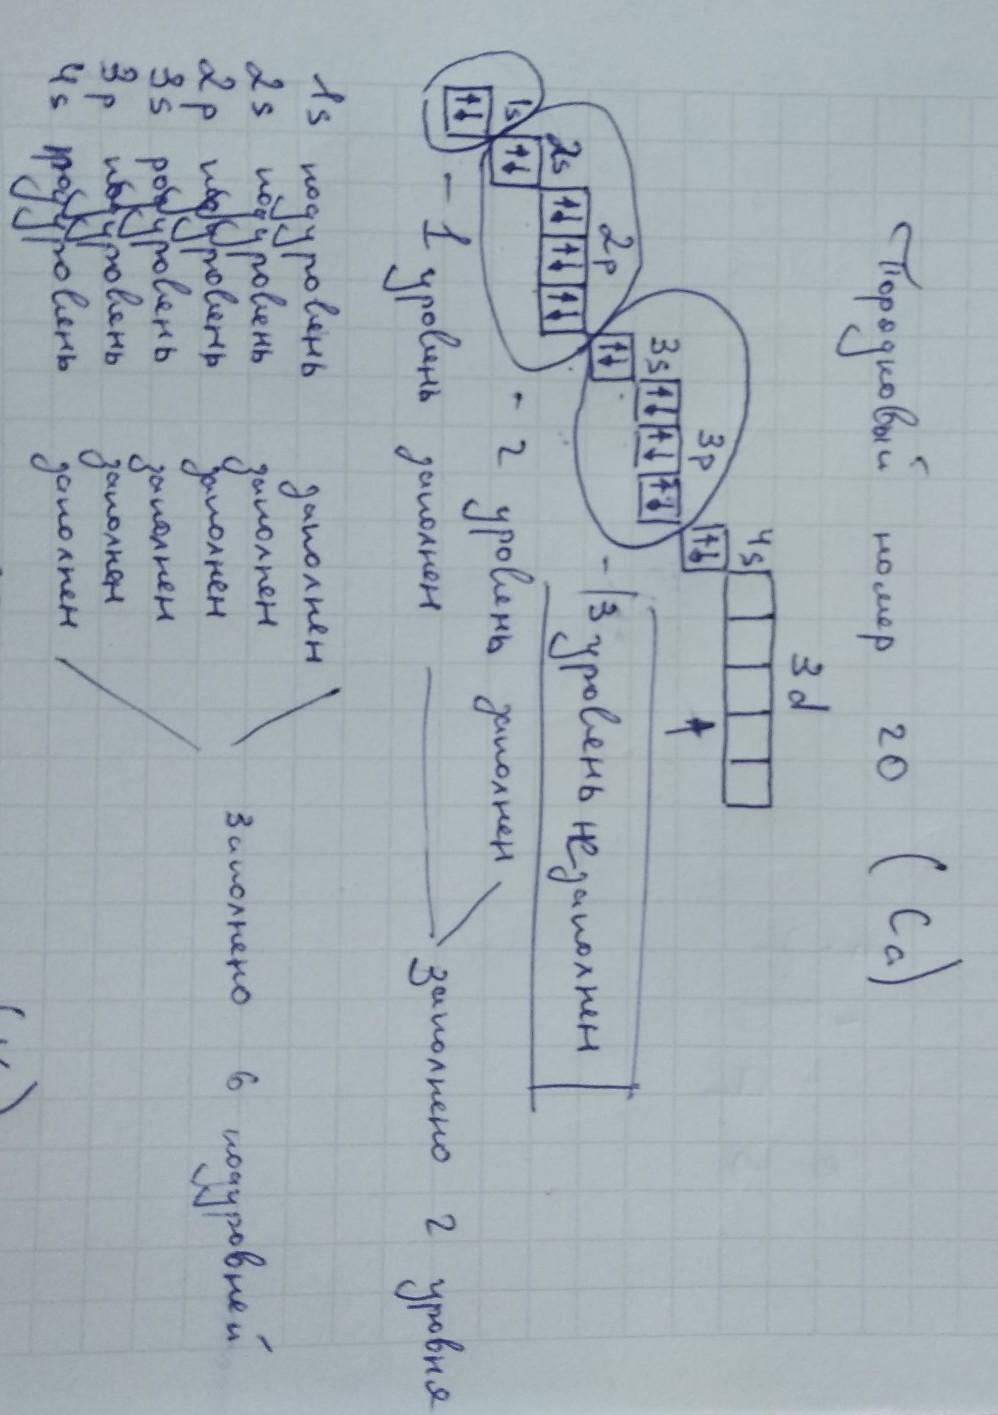 Порядковый номер 20 (Ca)
3d
4s
3p
3s
2p
2s
1s
- 3 уровень не заполнен
- 2 уровень заполнен
- 1 уровень заполнен
Заполнено 2 уровня
1s подуровень заполнен
2s подуровень заполнен
2p подуровень заполнен
3s подуровень заполнен
3p подуровень заполнен
4s подуровень заполнен
Заполнено 6 подуровней